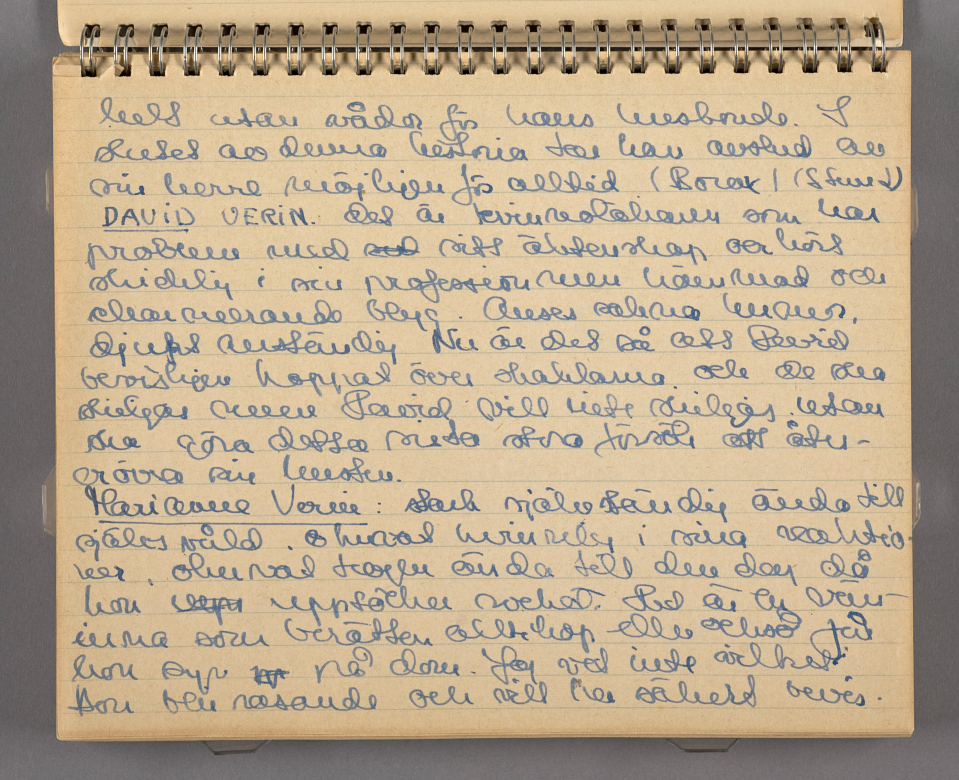 helt utan vådor för hans husbonde. I
slutet av denna historia tar han avsked av
sin herre möjligen för alltid (Borax! (Stumt)
DAVID VERIN. det är kvinnoläkaren som har
problem med sitt äktenskap oerhört
skicklig i sin profession men hämmad och
charmerande blyg. Anses sakna humor,
djupt anständig Nu är det så att David
bevisligen hoppat över skaklarna. och de ska
skiljas men David vill inte skiljas utan
ska göra detta sista stora försök att åter-
erövra sin hustru.
Marianne Verin: stark självständig ända till
själsvåld. oerhört kvinnlig i sina reaktio-
ner, trogen ända till den dag då
hon upptäcker sveket. Det är en vän-
inna som berättar alltihop eller också får
hon syn på dom. Jag vet inte vilket.
Hon blir rasande och vill ha säkert bevis.